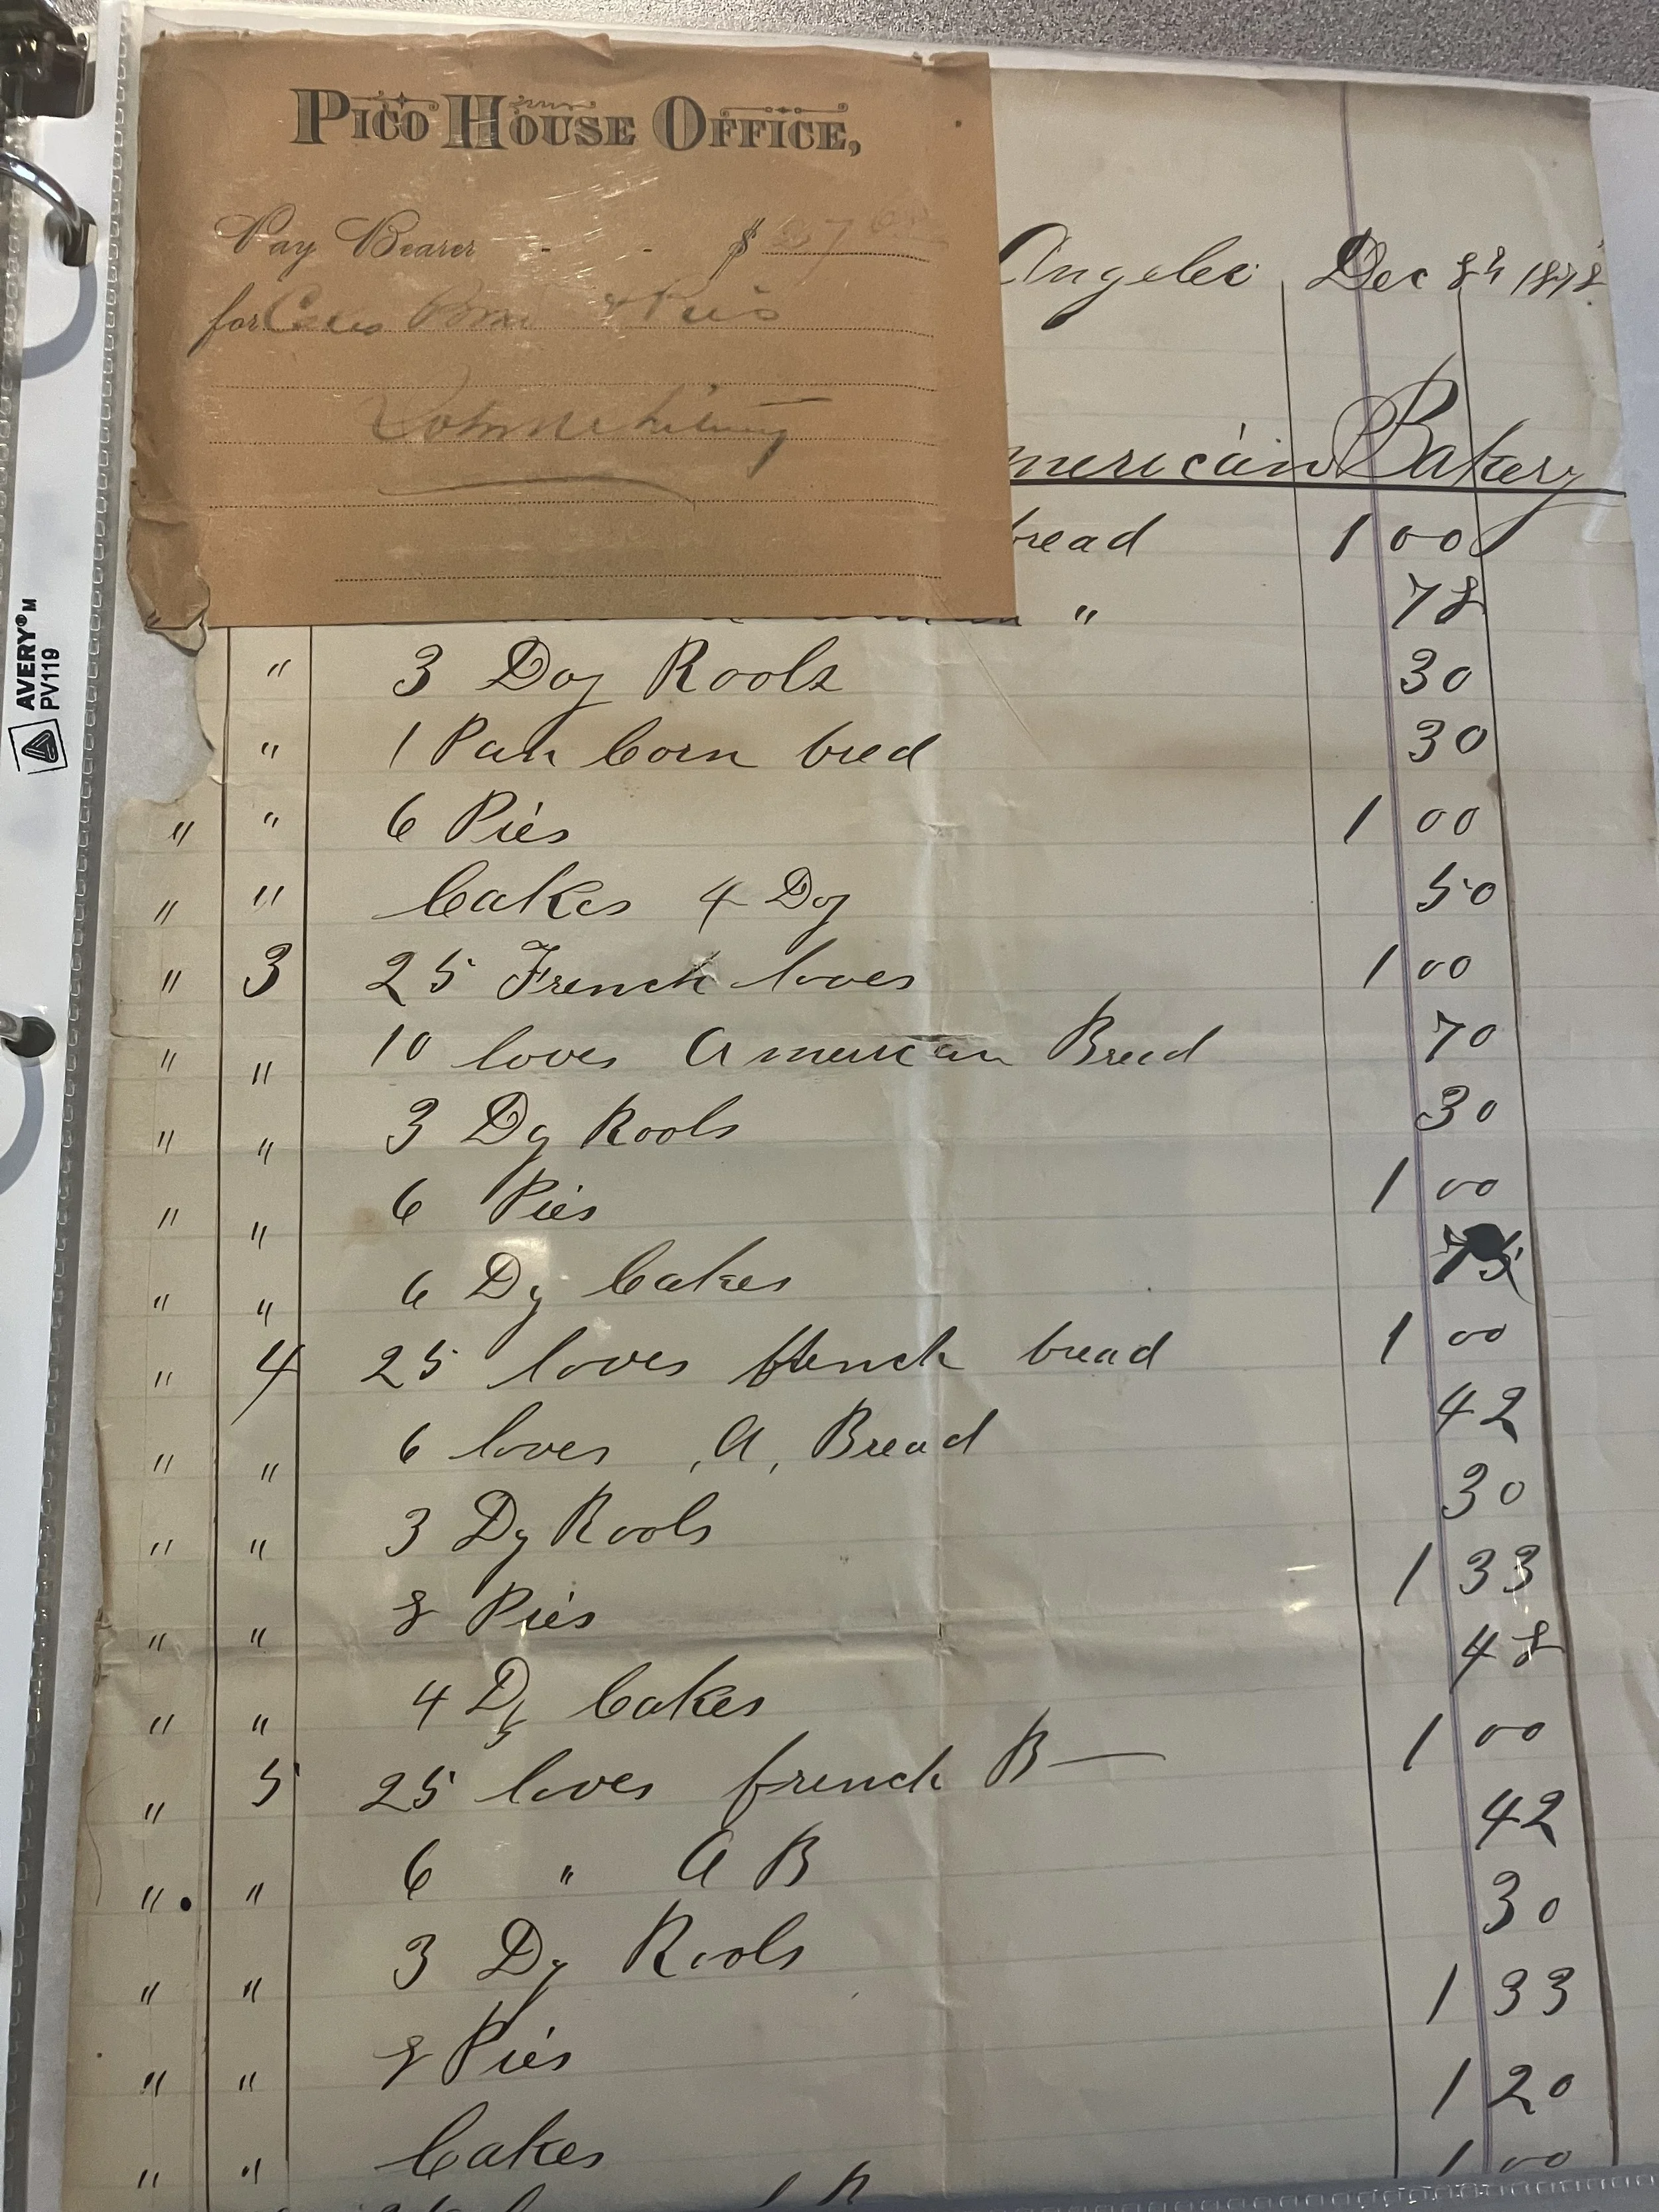 PICO HOUSE OFFICE,
Pay Bearer - - $
for & Pies
Angeles Dec 8th 1878
merican Bakery
bread 1 00
" 78
" 3 Doz Rools 30
" 1 Pan Corn bred 30
" " 6 Pies 1 00
" " Cakes 4 Doz 50
" 3 25 French loves 1 00
" " 10 loves American Bread 70
" " 3 Dz Rools 30
" " 6 Pies 1 00
" " 6 Dz Cakes 75
" 4 25 loves french bread 1 00
" " 6 loves , A, Bread 42
" " 3 Dz Rools 30
" " 8 Pies 1 33
" " 4 Dz Cakes 48
" 5 25 loves french B— 1 00
" " 6 " A B 42
" " 3 Dz Rools 30
" " 8 Pies 1 33
" " Cakes 1 20
1 00
AVERY® TM
PV119